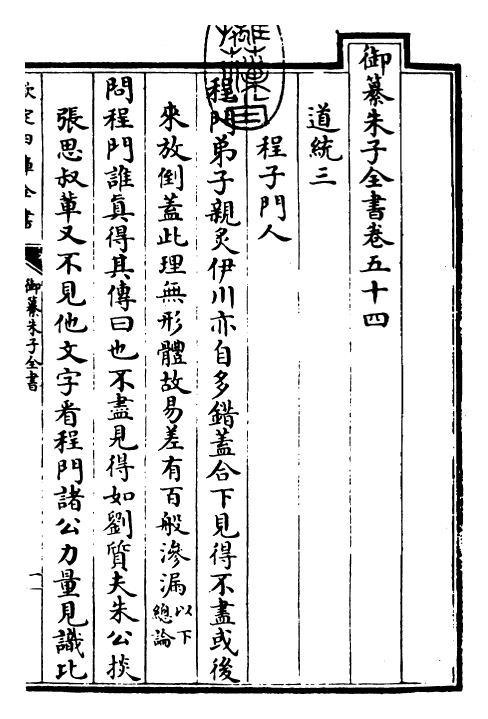 御纂朱子全書卷五十四
道統三
程子門人
程門弟子親炙伊川亦自多錯蓋合下見得不盡或後
來放倒蓋此理無形體故易差有百般滲漏以下總論
問程門誰真得其傳曰也不盡見得如劉質夫朱公掞
張思叔輩又不見他文字看程門諸公力量見識比
欽定四庫全書
御纂朱子全書
一